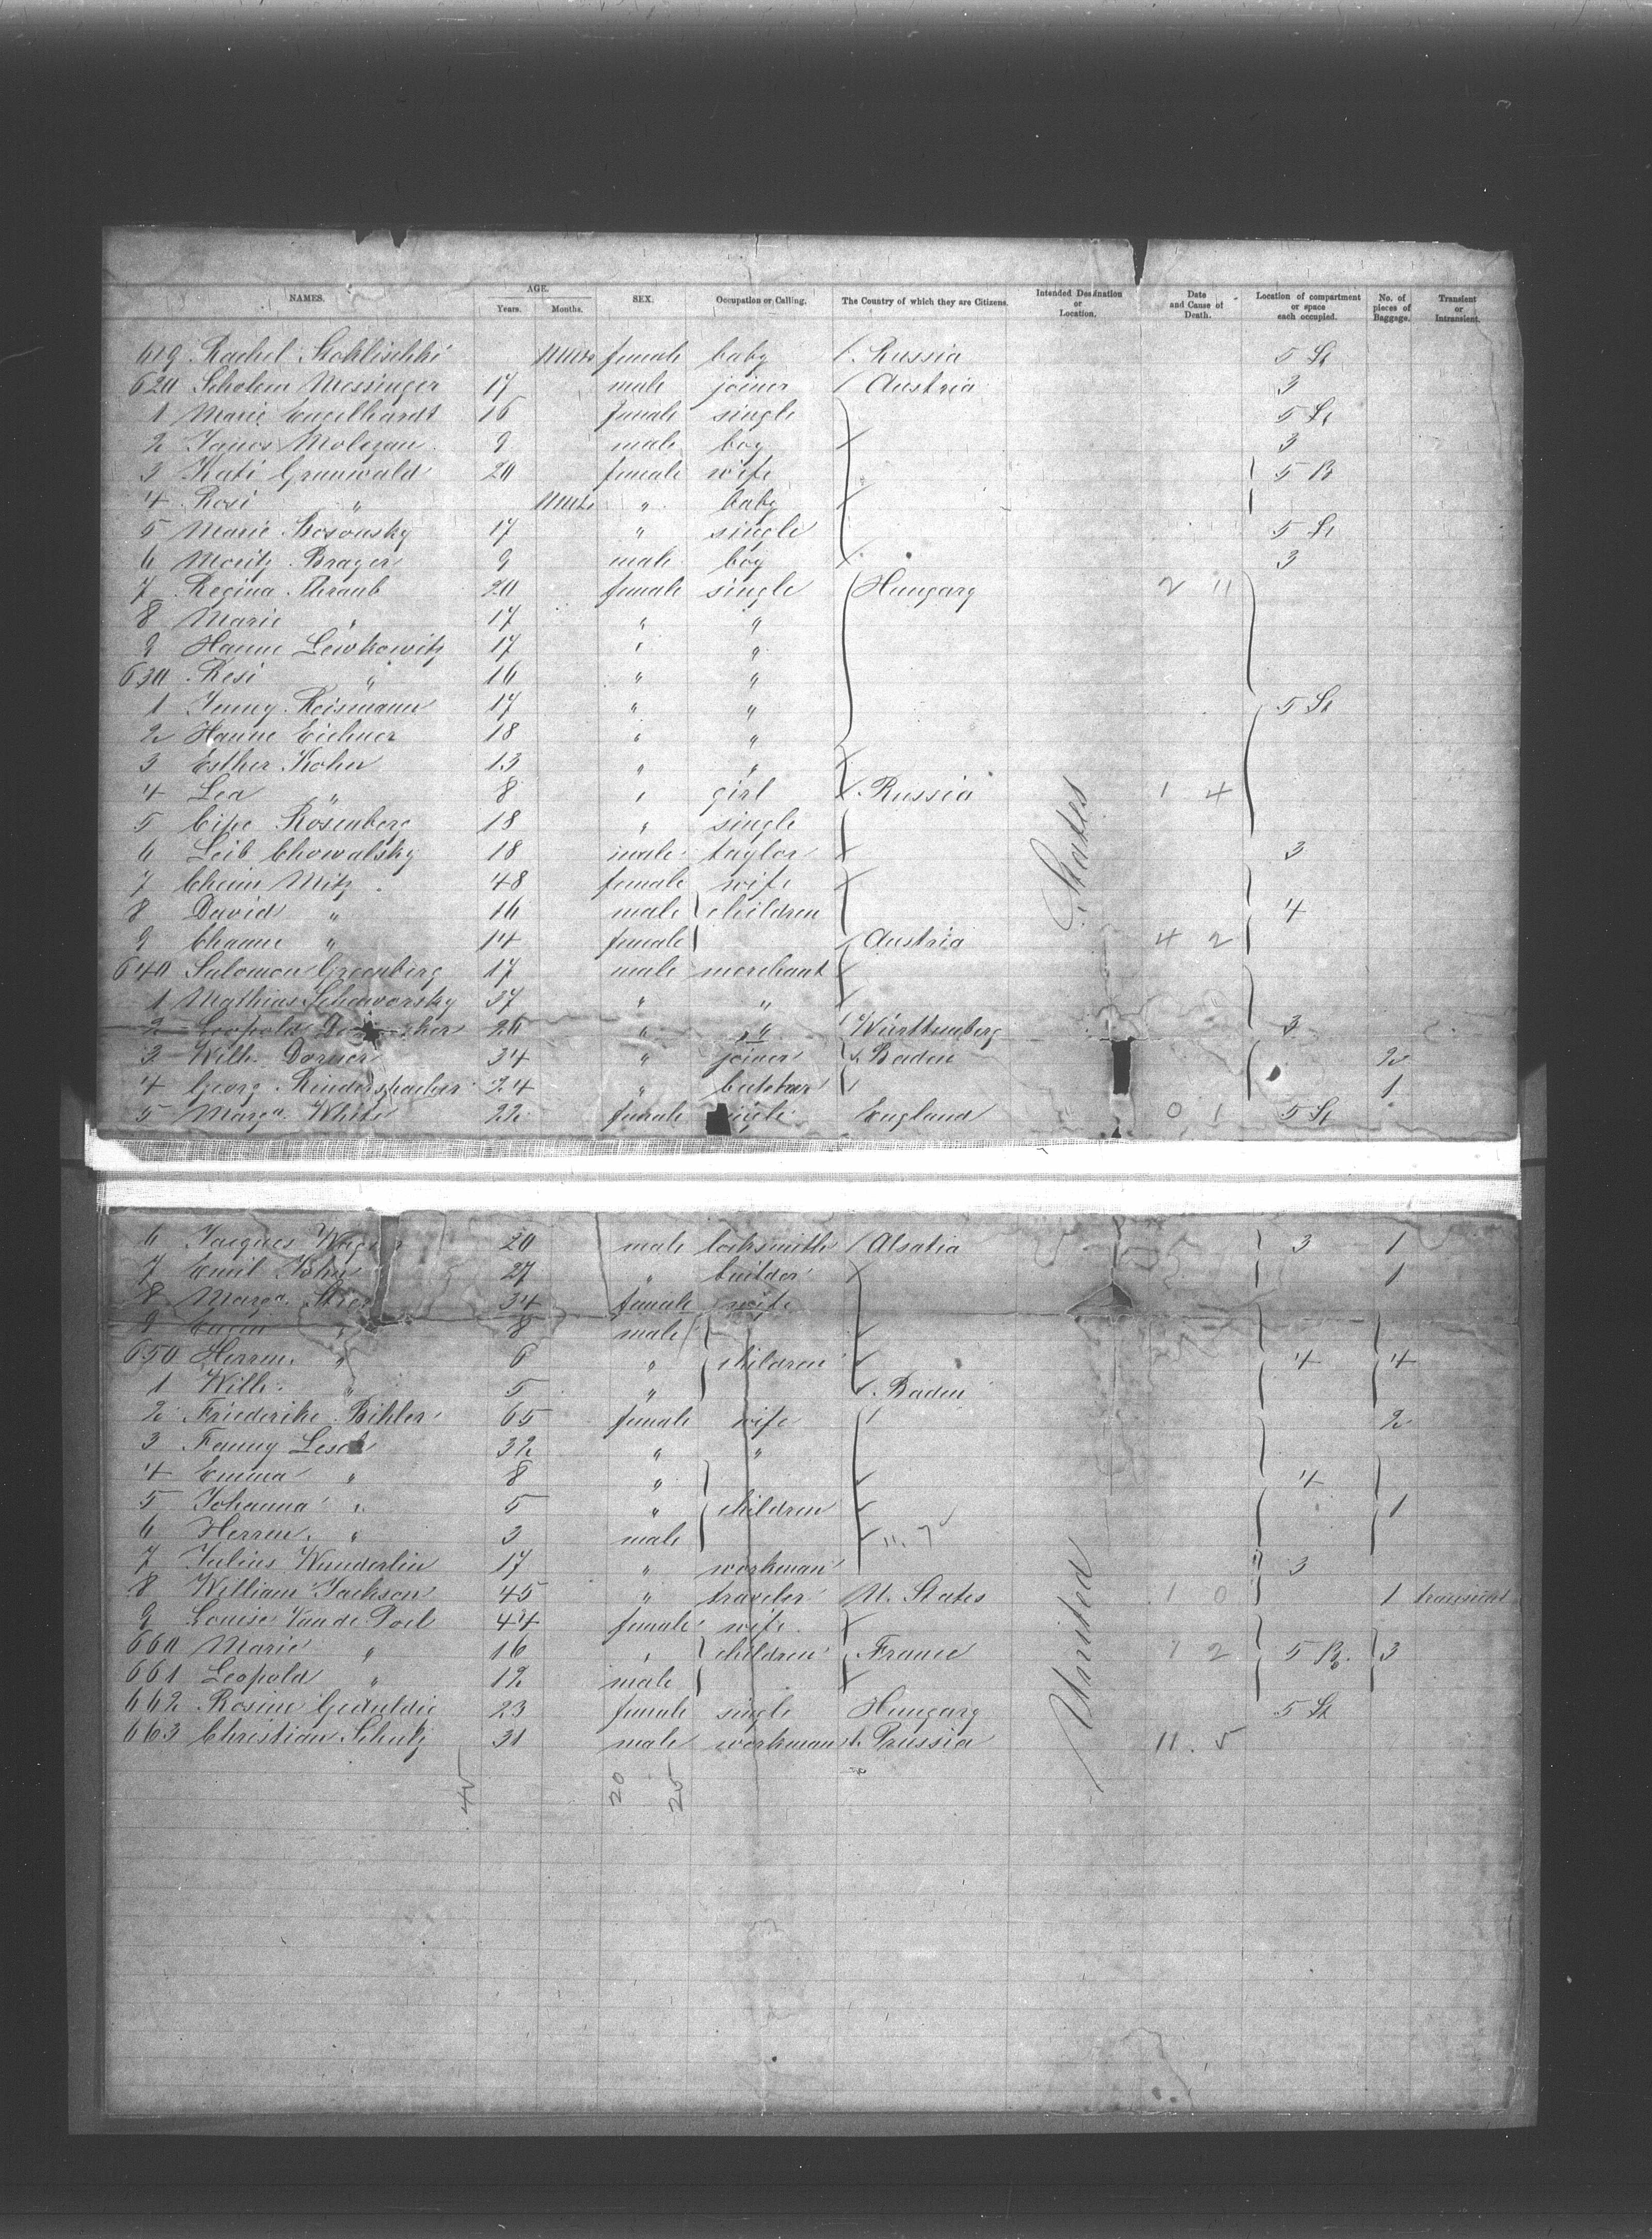 NAMES. AGE. SEX. Occupation or Calling. The Country of which they are Citizens. Intended Destination or Location. Date and Cause of Death. Location of compartment or space each occupied. No. of pieces of Baggage. Transient or Intransient.
Years. Months.
619 Rachel female baby Russia 5 St
620 Scholem Messinger 17 male joiner Austria 3
1 Marie Engelhardt 16 female single 5 St
2 Janos Molegan 9 male boy 3
3 Kati Grunwald 20 female wife 5 B
4 Rosi " " baby
5 Marie Kosousky 17 " single 5 St
6 Moritz Prager 9 male boy 3
7 Regina Thraub 20 female single Hungary 2 11
8 Marie " 17 " "
9 Hanne Lewkowitz 17 " "
630 Resi " 16 " "
1 Jenny Reismann 17 " " 5 St
2 Hanne Eichner 18 " "
3 Esther Kohn 13 " "
4 Lea " 8 " girl Russia 1 4
5 Cipe Rosenberg 18 " single
6 Leib Chowalsky 18 male taylor 3
7 Cheim Mitz 48 female wife
8 David " 16 male children 4
9 Channe " 14 female Austria 4 2
640 Salomon Greenberg 17 male merchant
1 Mathias Schaworsky 37 " "
2 Leopold 26 " " Württemberg 3
3 Wilh. Dorner 34 " joiner Baden 2
4 Georg Rinderspacher 24 " butcher 1
5 Marga. White 22 female England 0 1 5 St
6 Jacques 20 male locksmith Alsatia 3 1
7 Emil 27 " builder 1
8 Marga. 34 female wife
9 Eugen " 8 male
650 Herrm. " 6 " children 4 4
1 Wilh. " 5 " Baden
2 Friederike Bihler 65 female wife 2
3 Fanny Lesch 32 " "
4 Emma " 8 " 4
5 Johanna " 5 " children 1
6 Herrm. " 3 male 11. 7
7 Julius Wunderlin 17 " workman 3
8 William Jackson 45 " traveler U. States 1 0 1 transient
9 Louise Van de Poel 44 female wife
660 Marie " 16 " children France 1 2 5 B. 3
661 Leopold " 12 male
662 Rosine Geduldig 23 female single Hungary 5 St
663 Christian Schulz 31 male workman Prussia 11. 5
45 20 25
United States